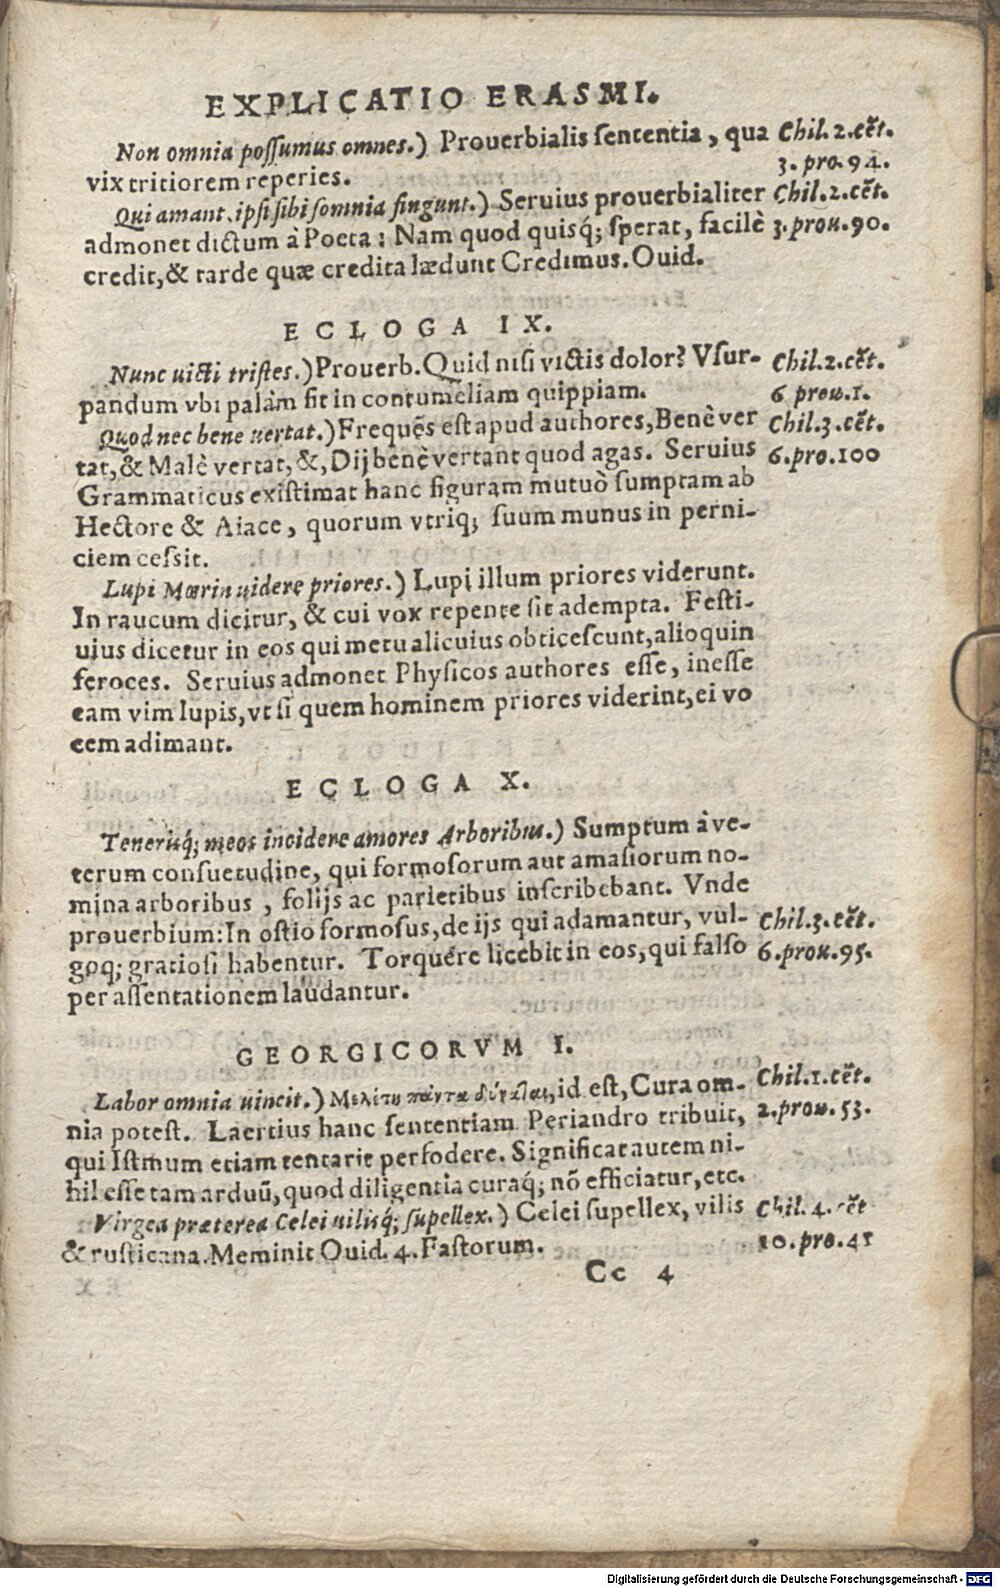 EXPLICATIO ERASMI.
Non omnia possumus omnes.) Prouerbialis sententia, qua
Chil. 2. cẽt.
3. pro. 94.
vix tritiorem reperies.
Qui amant, ipsi sibi somnia fingunt.) Seruius prouerbialiter
Chil. 2. cẽt.
admonet dictum à Poeta: Nam quod quisq; sperat, facilè
3. prou. 90.
credit, & tarde quæ credita lædunt Credimus. Ouid.
ECLOGA IX.
Nunc uicti tristes.) Prouerb. Quid nisi victis dolor? Vsur-
Chil. 2. cẽt.
pandum vbi palàm fit in contumeliam quippiam.
6 prou. 1.
Quod nec bene uertat.) Frequẽs est apud authores, Benè ver
Chil. 3. cẽt.
tat, & Malè vertat, &, Dij benè vertant quod agas. Seruius
6. pro. 100
Grammaticus existimat hanc figuram mutuò sumptam ab
Hectore & Aiace, quorum vtriq; suum munus in perni-
ciem cessit.
Lupi Mœrin uidere priores.) Lupi illum priores viderunt.
In raucum dicitur, & cui vox repente sit adempta. Festi-
uius dicetur in eos qui metu alicuius obticescunt, alioquin
feroces. Seruius admonet Physicos authores esse, inesse
eam vim lupis, vt si quem hominem priores viderint, ei vo
cem adimant.
ECLOGA X.
Tenerisq; meos incidere amores Arboribus.) Sumptum à ve-
terum consuetudine, qui formosorum aut amasiorum no-
mina arboribus, folijs ac parietibus inscribebant. Vnde
prouerbium: In ostio formosus, de ijs qui adamantur, vul-
Chil. 3. cẽt.
goq; gratiosi habentur. Torquere licebit in eos, qui falso
6. prou. 95.
per assentationem laudantur.
GEORGICORVM I.
Labor omnia uincit.) Μελέτη πάντα δύναται, id est, Cura om-
Chil. 1. cẽt.
nia potest. Laertius hanc sententiam Periandro tribuit,
2. prou. 53.
qui Istmum etiam tentarit perfodere. Significat autem ni-
hil esse tam arduũ, quod diligentia curaq; nõ efficiatur, etc.
Virgea præterea Celei uilisq; supellex.) Celei supellex, vilis
Chil. 4. cẽt
& rusticana. Meminit Ouid. 4. Fastorum.
10. pro. 41
Cc 4
Digitalisierung gefördert durch die Deutsche Forschungsgemeinschaft - DFG